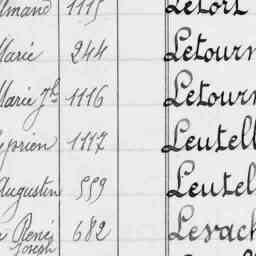 lmand 1115 Letort
Marie 244 Letourn
Marie Jh 1116 Letourn
yprien 1117 Leutell
Augustin 559 Leutel
René 682 Levach
Joseph